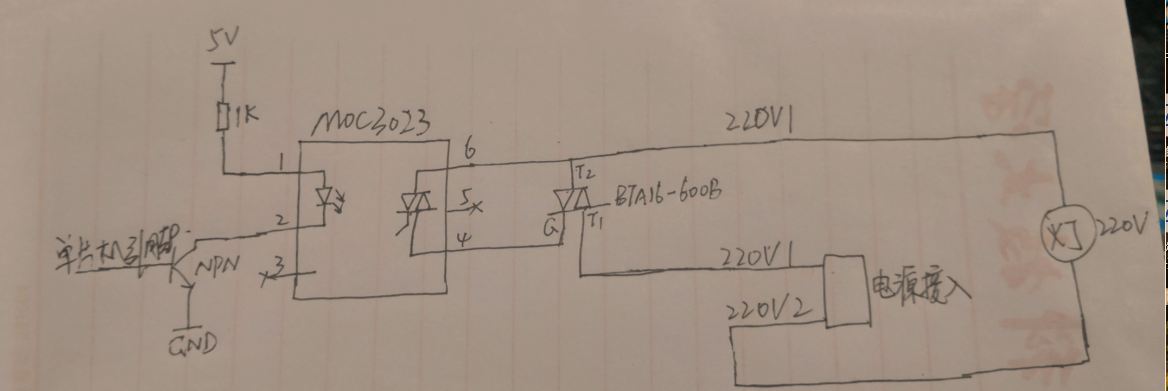 5V
1K
MOC3023
1
2
3
6
5
4
单片机引脚
NPN
GND
T2
G
T1
BTA16-600B
220V1
220V1
220V2
电源接入
灯
220V